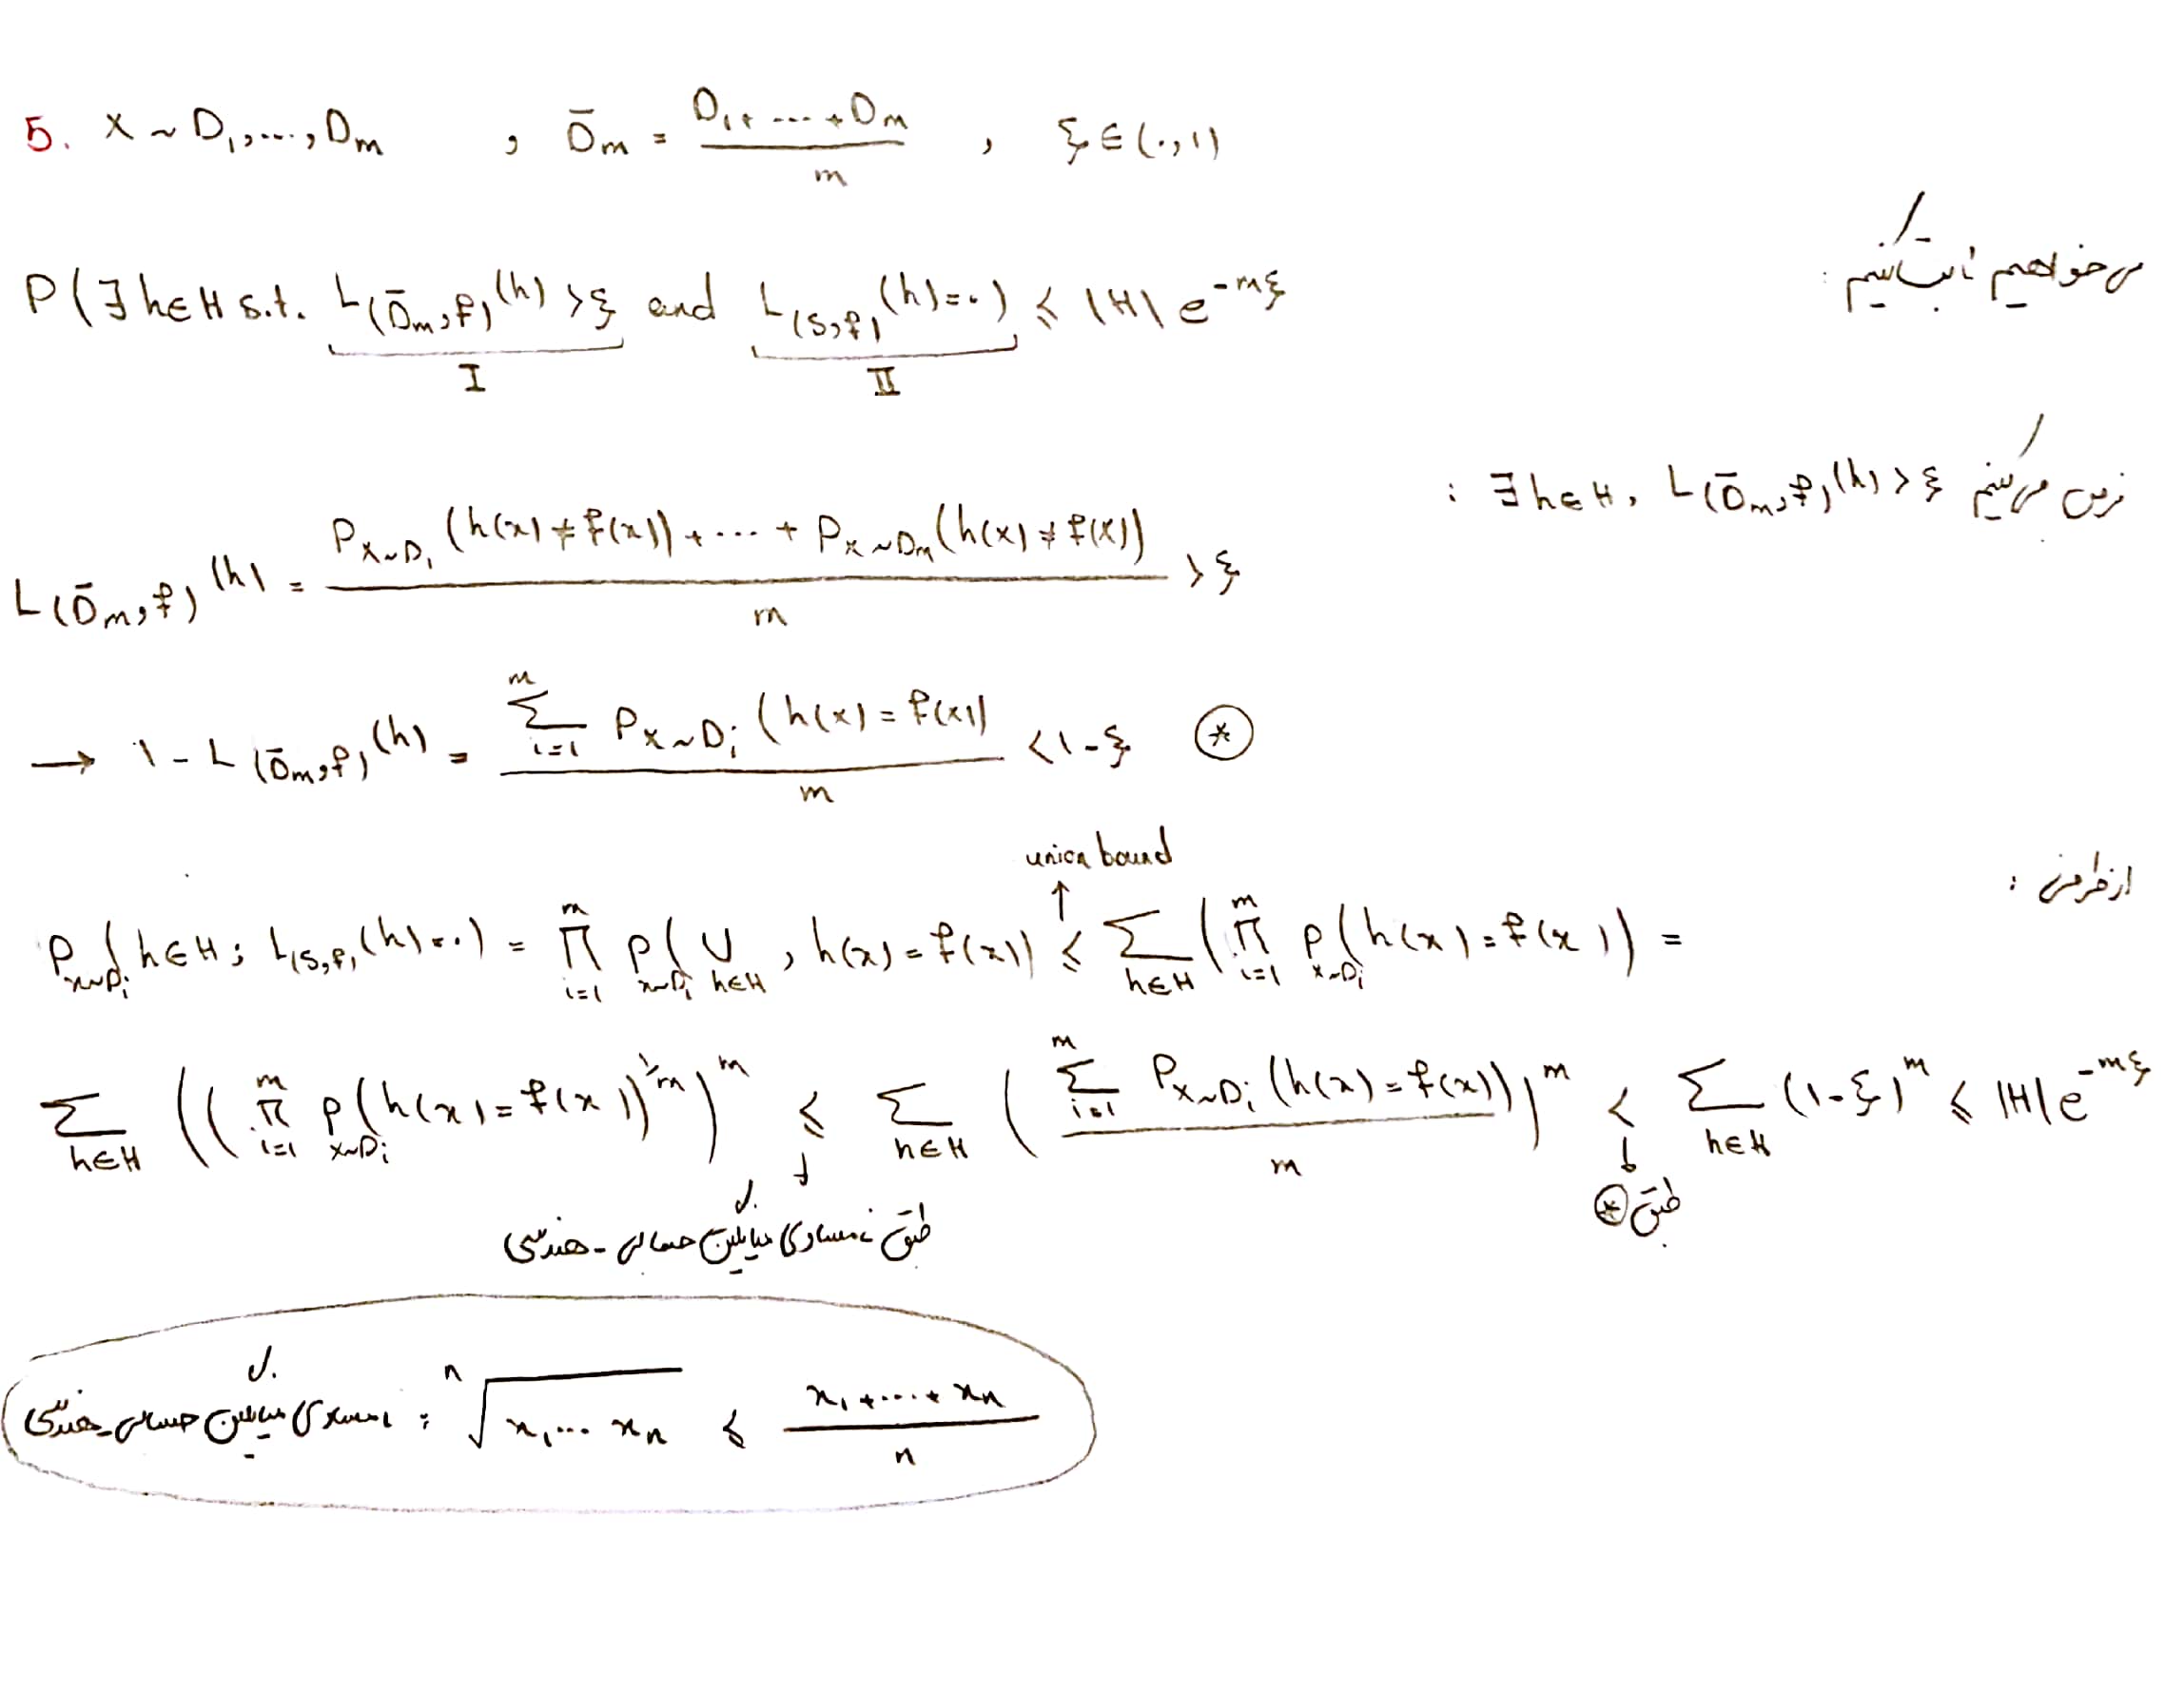 5. X ~ D₁, ..., Dₘ , D̄ₘ = (D₁ + ... + Dₘ) / m , ξ ∈ (۰, ۱)
می‌خواهیم ثابت کنیم :
P(∃ h∈H s.t. L(D̄ₘ,f)(h) > ξ and L(S,f)(h) = ۰) ≤ |H| e^(-mξ)
I II
فرض می‌کنیم ∃ h∈H, L(D̄ₘ,f)(h) > ξ :
L(D̄ₘ,f)(h) = (P_{X~D₁}(h(x) ≠ f(x)) + ... + P_{X~Dₘ}(h(x) ≠ f(x))) / m > ξ
→ 1 - L(D̄ₘ,f)(h) = (Σ_{i=1}^{m} P_{X~Dᵢ}(h(x) = f(x))) / m < 1-ξ ⊛
از طرفی :
union bound
↑
P_{x~Dᵢ}(h∈H ; L(S,f)(h) = ۰) = Π_{i=1}^{m} P_{x~Dᵢ}(∪_{h∈H} , h(x) = f(x)) ≤ Σ_{h∈H} (Π_{i=1}^{m} P_{x~Dᵢ}(h(x) = f(x)) =
Σ_{h∈H} ((Π_{i=1}^{m} P_{x~Dᵢ}(h(x) = f(x))^{1/m})^m ≤ Σ_{h∈H} ((Σ_{i=1}^{m} P_{X~Dᵢ}(h(x) = f(x))) / m)^m < Σ_{h∈H} (1-ξ)^m ≤ |H| e^{-mξ}
طبق ⊛
طبق نامساوی میانگین حسابی - هندسی
نامساوی میانگین حسابی - هندسی : ⁿ√(x₁ ... xₙ) ≤ (x₁ + ... + xₙ) / n